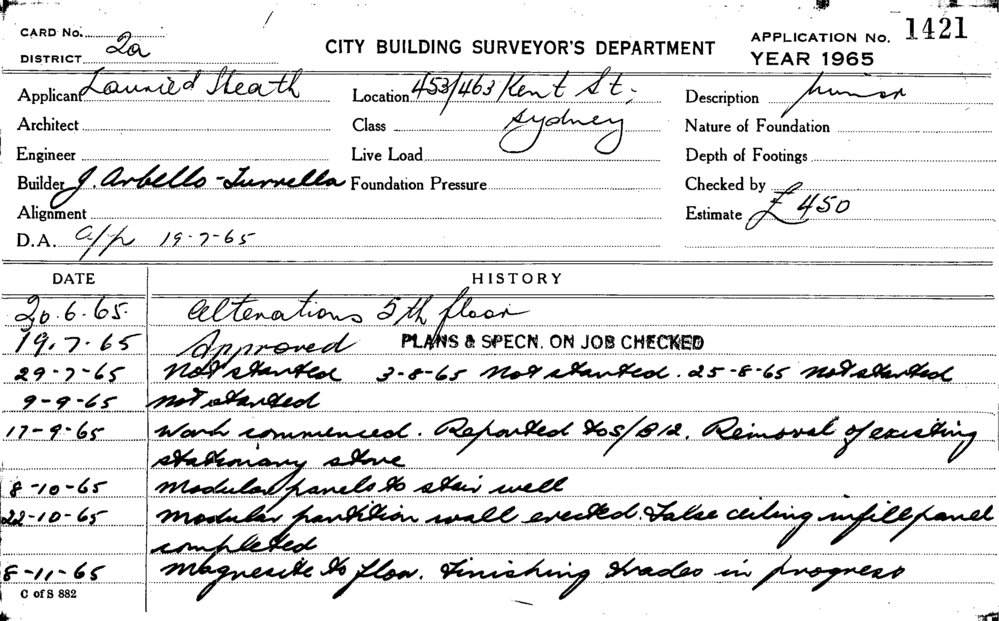 CARD No. 2a
CITY BUILDING SURVEYOR'S DEPARTMENT
APPLICATION No. 1421
DISTRICT
YEAR 1965
Applicant Laurie & Heath Location 453/463 Kent St, Description minor
Architect Class Sydney Nature of Foundation
Engineer Live Load Depth of Footings
Builder J. Arbello-Turrella Foundation Pressure Checked by
Alignment Estimate £450
D.A. app 19-7-65
DATE HISTORY
20.6.65. alterations 5th floor
19.7.65 Approved PLANS & SPECN. ON JOB CHECKED
29-7-65 Not started 3-8-65 Not started. 25-8-65 not started
9-9-65 not started
17-9-65 Work commenced. Reported to S/B12. Removal of existing
stationary stove
8-10-65 Modular panels to stair well
22-10-65 Modular partition wall erected. False ceiling infill panel
completed
8-11-65 Magnesite to floor. Finishing trades in progress
C of S 882